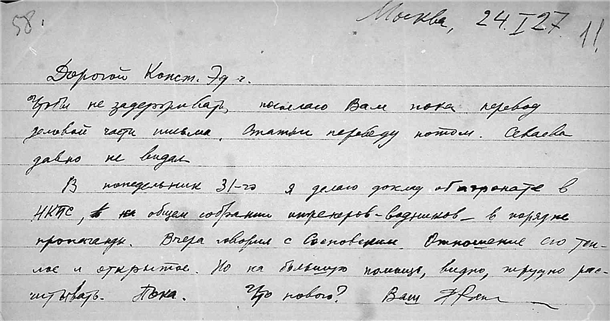 58.
Москва, 24.I 27.
11
Дорогой Конст. Эд-ч.
Чтобы не задерживать, посылаю Вам пока перевод
деловой части письма. Статьи переведу потом.
давно не видал
В понедельник 31-го я делаю докл. об в
НКПС, на общем собрании инженеров-водников – в порядке
пропаганды. Вчера говорил с Сосновским Отношение его теп-
лое и открытое. Но на большую помощь, видно, трудно рас-
читывать. Пока. Что нового? Ваш